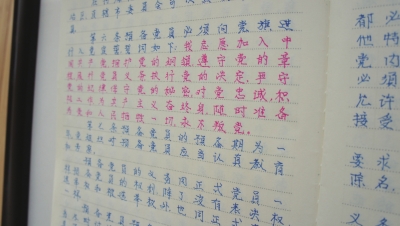 第六条预备党员必须向党旗进
行入党宣誓。誓词如下:我志愿加入中
国共产党,拥护党的纲领,遵守党的章
程,履行党员义务,执行党的决定,严守
党的纪律,保守党的秘密,对党忠诚,积
极工作,为共产主义奋斗终身,随时准备
为党和人民牺牲一切,永不叛党。
第七条预备党员的预备期为一
年。党组织对预备党员应当认真教育
和考察。
预备党员的义务同正式党员一
样。预备党员的权利,除了没有表决权、
选举权和被选举权以外,也同正式党员
都必
他特
党内
必须
允许
接受
要求
除名
义务